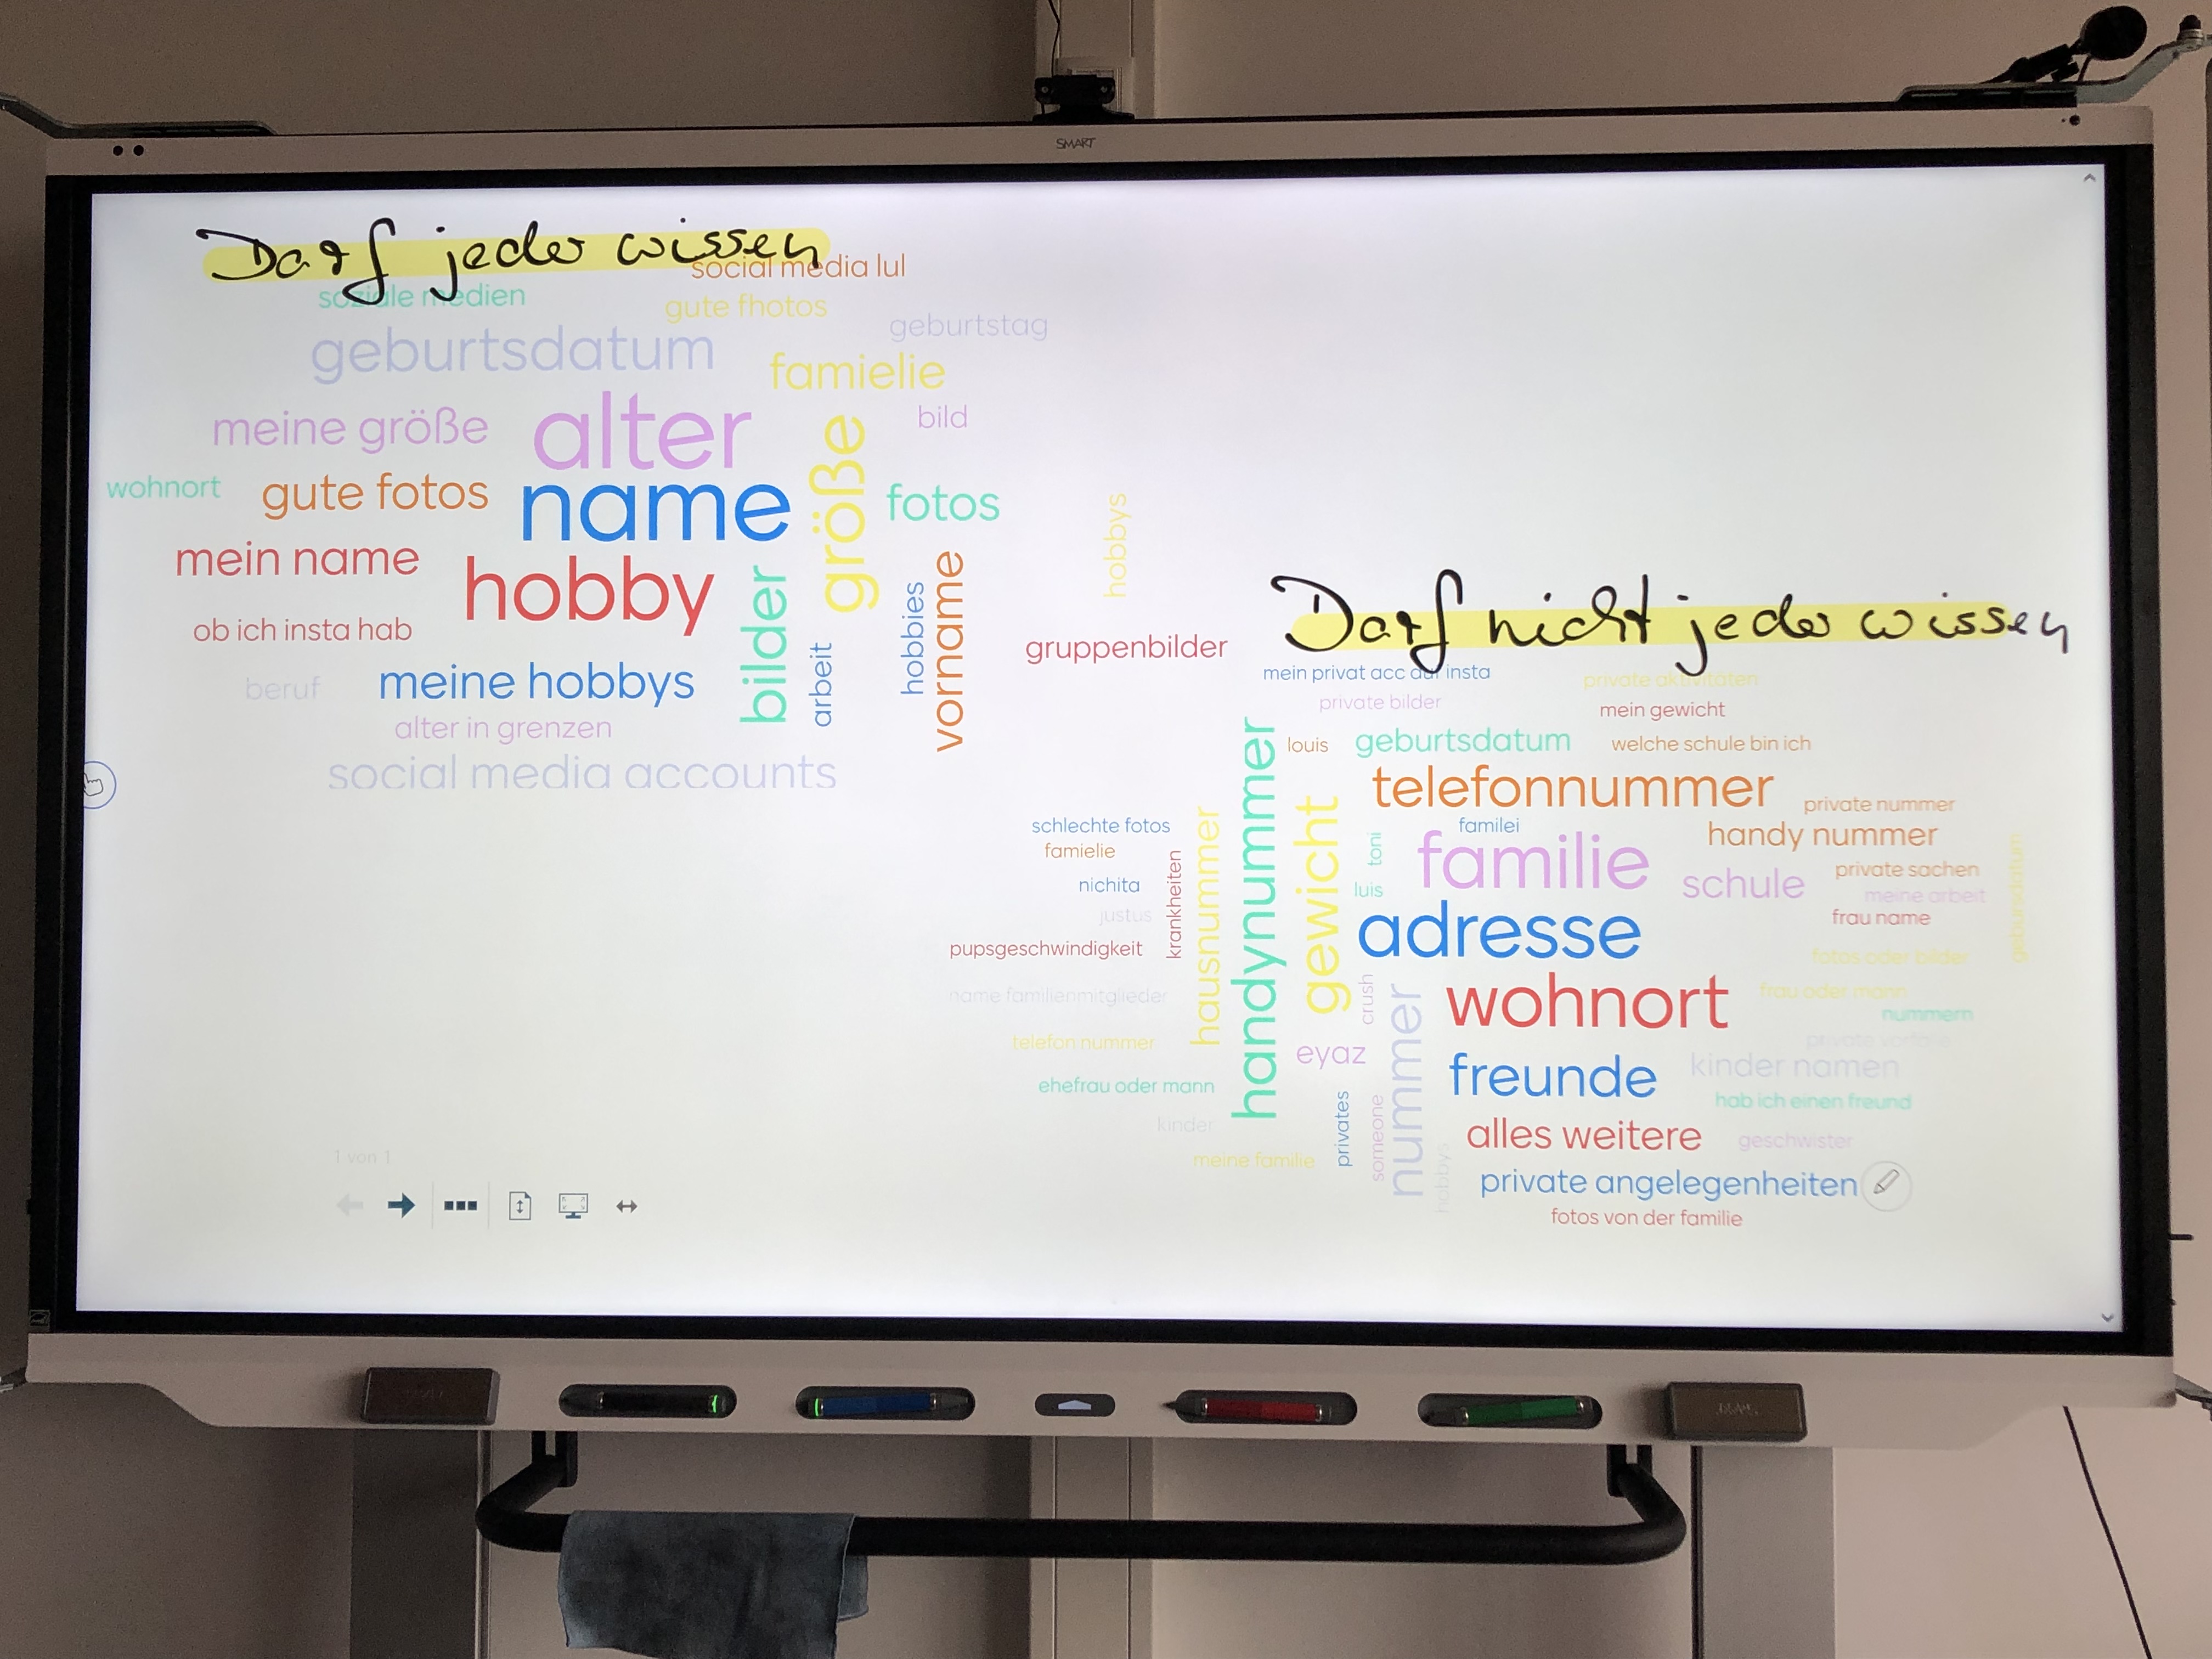 SMART
Darf jeder wissen
social media lul
soziale medien
gute fhotos
geburtstag
geburtsdatum
famielie
meine größe
alter
bild
größe
wohnort
gute fotos
name
fotos
hobbys
mein name
hobby
bilder
hobbies
vorname
ob ich insta hab
arbeit
gruppenbilder
beruf
meine hobbys
alter in grenzen
social media accounts
Darf nicht jeder wissen
mein privat acc auf insta
private aktivitäten
private bilder
mein gewicht
louis
geburtsdatum
welche schule bin ich
telefonnummer
private nummer
schlechte fotos
familei
handy nummer
famielie
krankheiten
hausnummer
handynummer
gewicht
toni
familie
schule
private sachen
gebursdatum
nichita
luis
meine arbeit
justus
adresse
frau name
pupsgeschwindigkeit
fotos oder bilder
name familienmitglieder
crush
nummer
wohnort
frau oder mann
nummern
telefon nummer
eyaz
freunde
kinder namen
ehefrau oder mann
privates
someone
hab ich einen freund
kinder
alles weitere
geschwister
meine familie
hobbys
private angelegenheiten
fotos von der familie
1 von 1